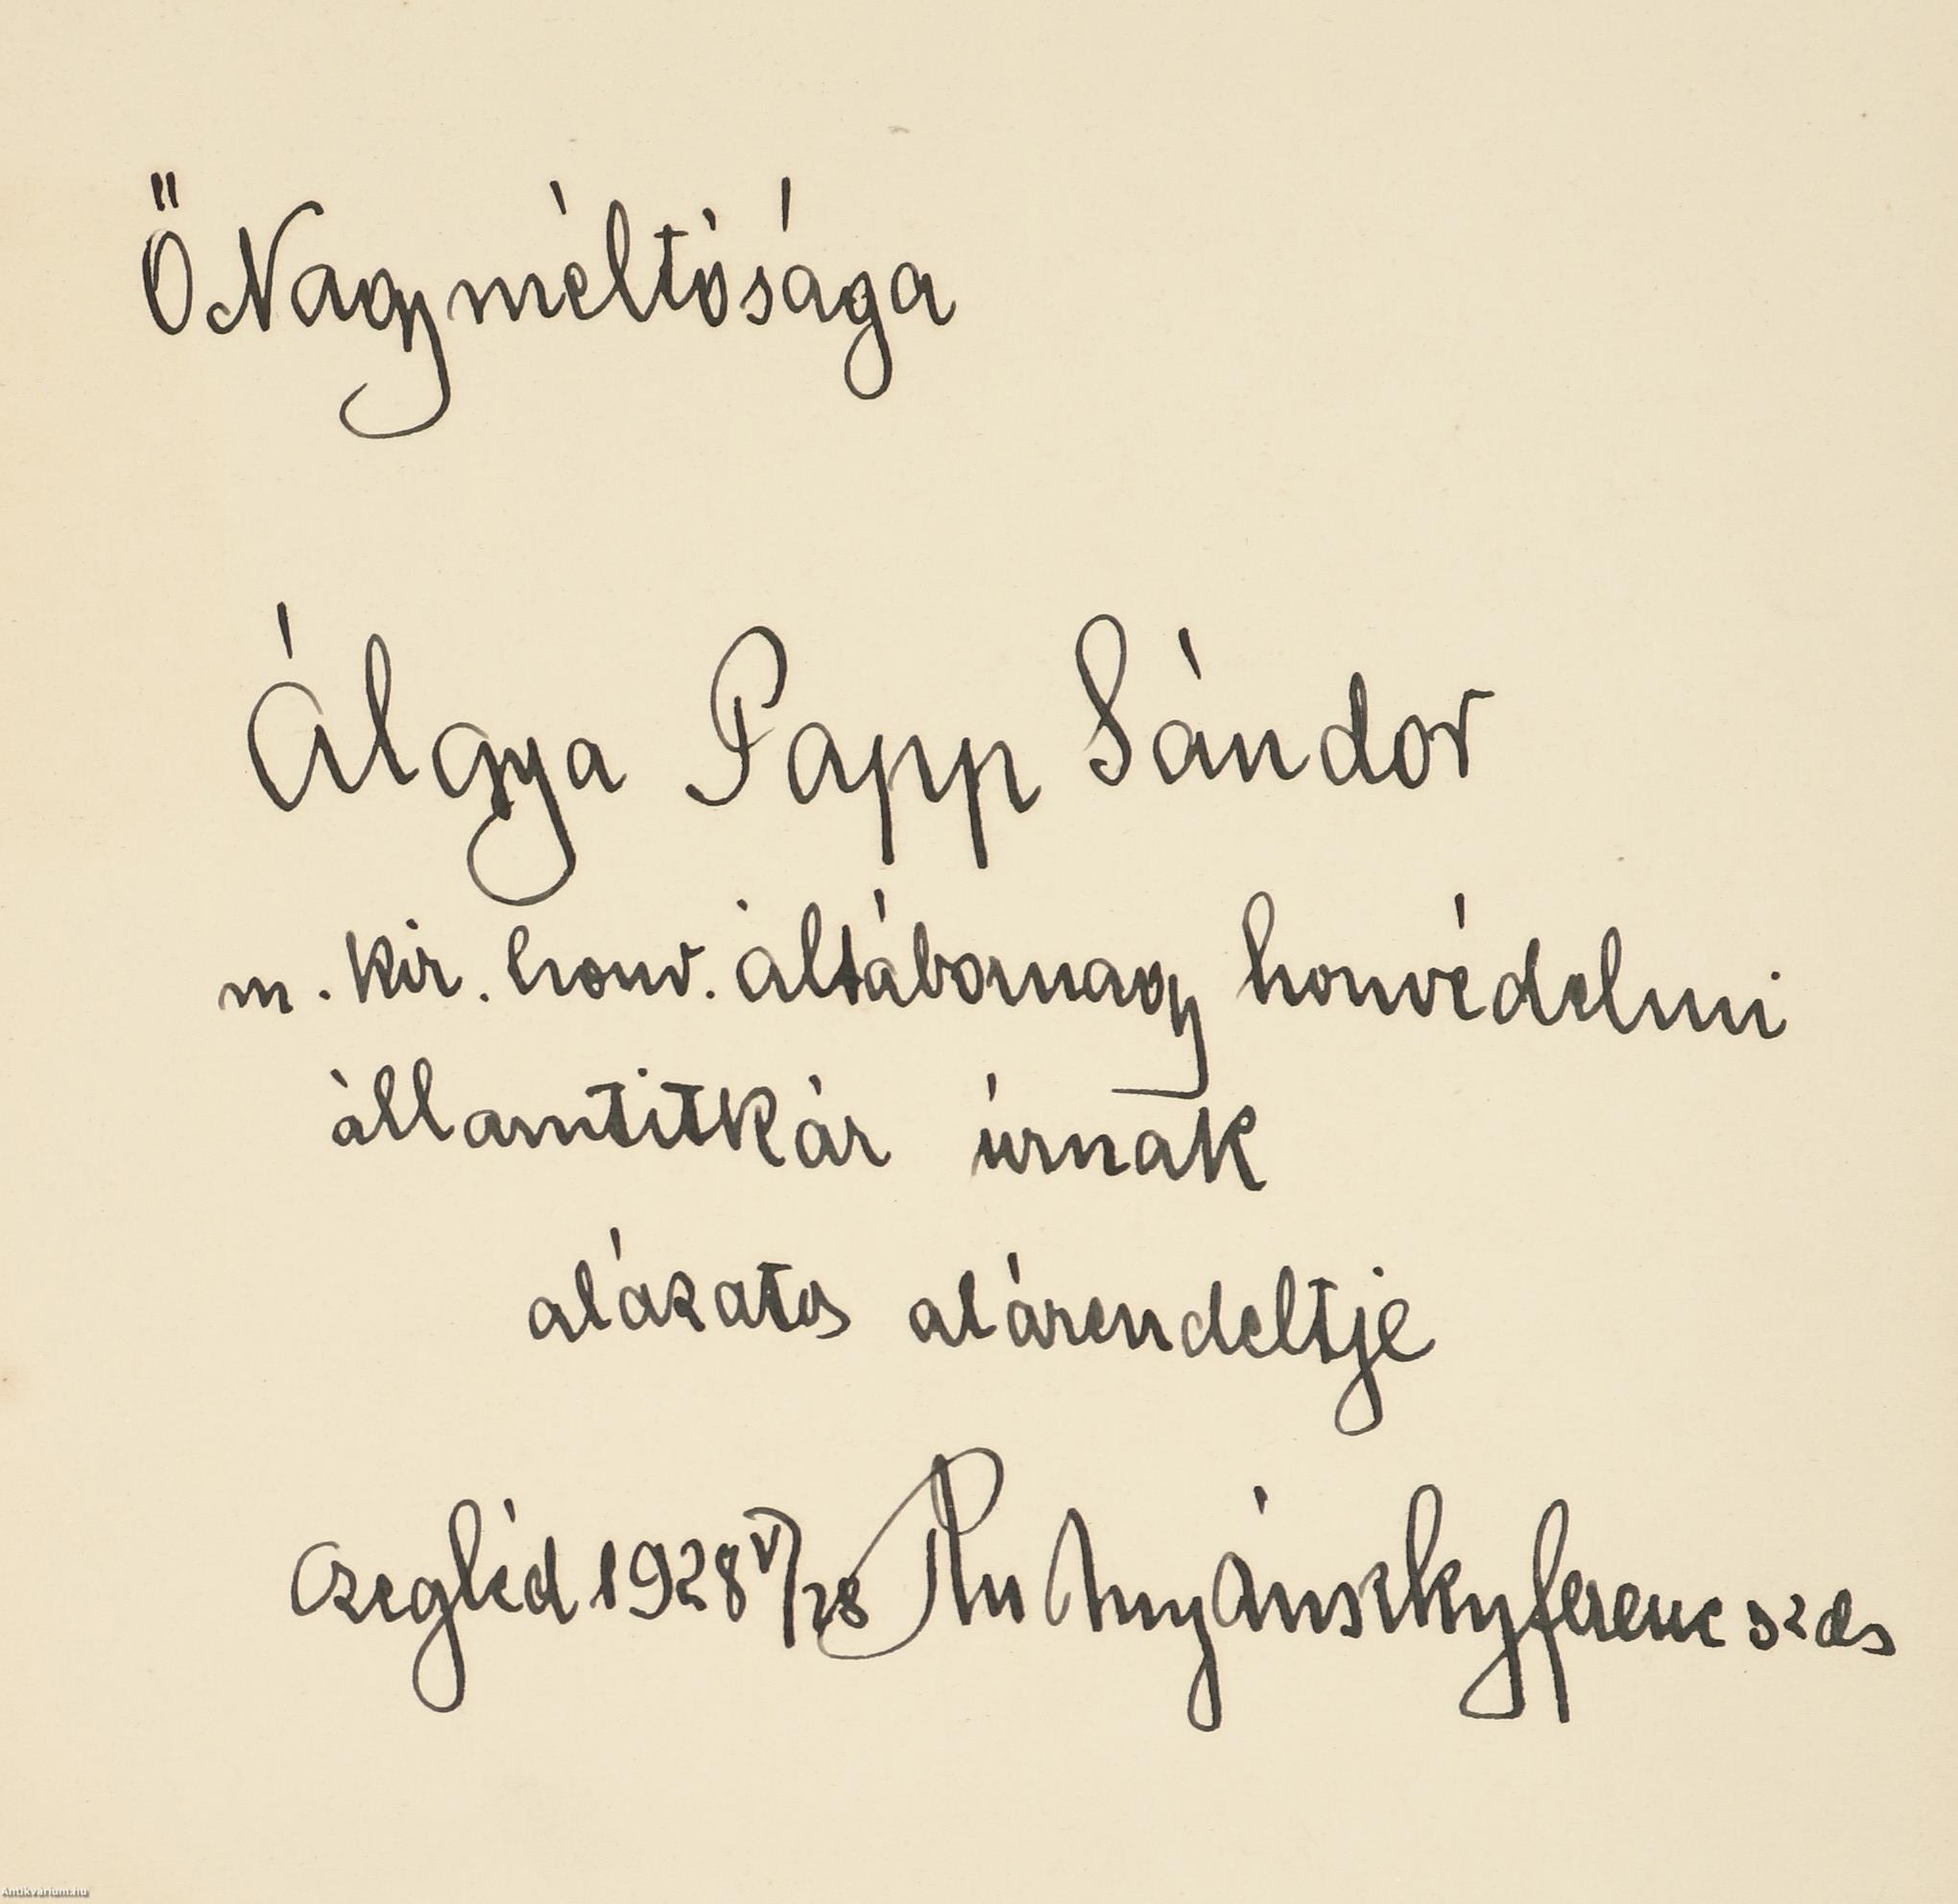 Ő Nagyméltósága
Álgya Papp Sándor
m. kir. honv. altábornagy honvédelmi
államtitkár úrnak
alázatos alárendeltje
Czegléd 1928 V/28 Rudnyánszky ferenc szds
Antikvarium.hu